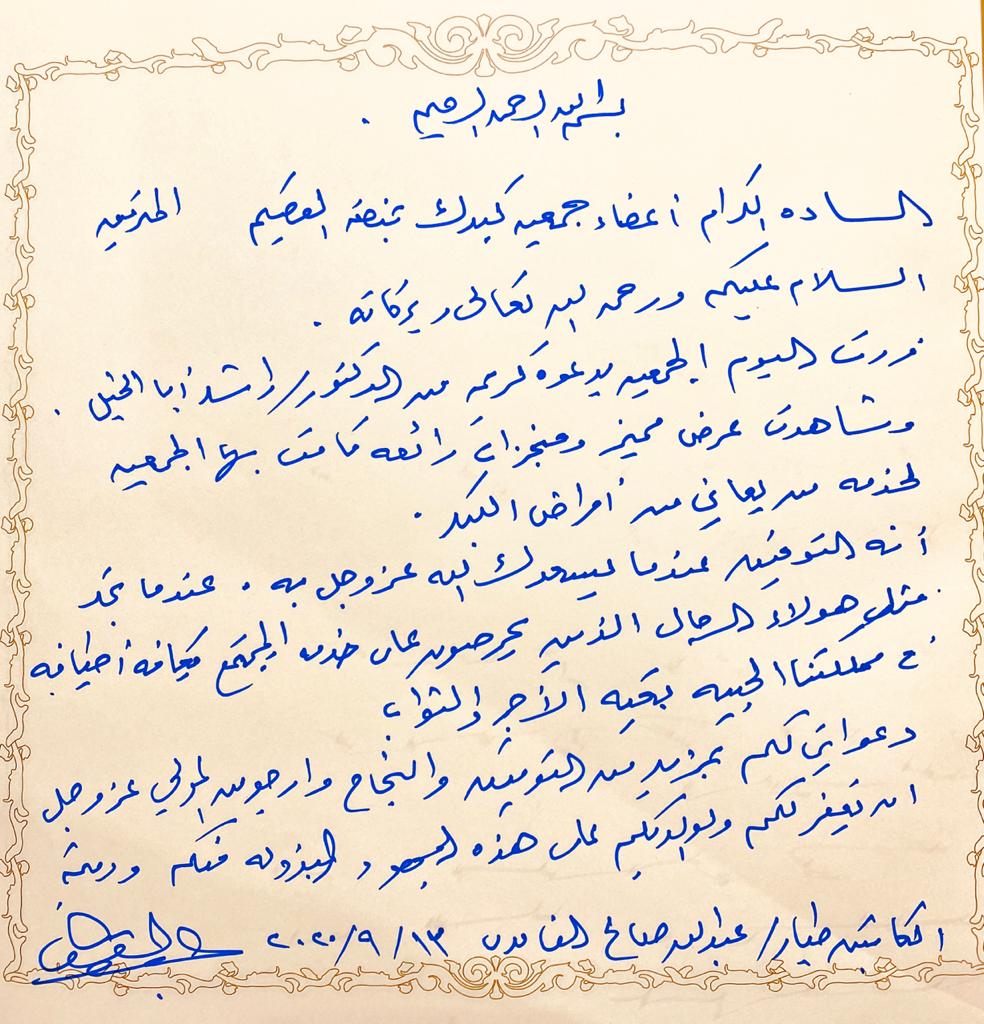 بسم الله الرحمن الرحيم .
الساده الكرام أعضاء جمعيه كبدك بمنطقه القصيم المحترمين
السلام عليكم ورحمه الله تعالى وبركاته .
زرت اليوم الجمعيه بدعوه كريمه من الدكتور/ راشد أبا الخيل .
وشاهدت عرض مميز ومنجزات رائعه قامت بها الجمعيه
لخدمه من يعاني من أمراض الكبد .
أنه التوفيق عندما يسعدك الله عز وجل به . عندما تجد
مثل هولاء الرجال الذين يحرصون على خدمه المجتمع بكافه أطيافه
في مملكتنا الحبيبه بغيه الأجر والثواب
دعواتي لكم بمزيد من التوفيق والنجاح وارجو من المولى عز وجل
ان يغفر لكم ولوالديكم على هذه الجهود المبذوله منكم
الكابتن طيار/ عبدالله صالح الغامدي ٢٠٢٠/٩/١٣